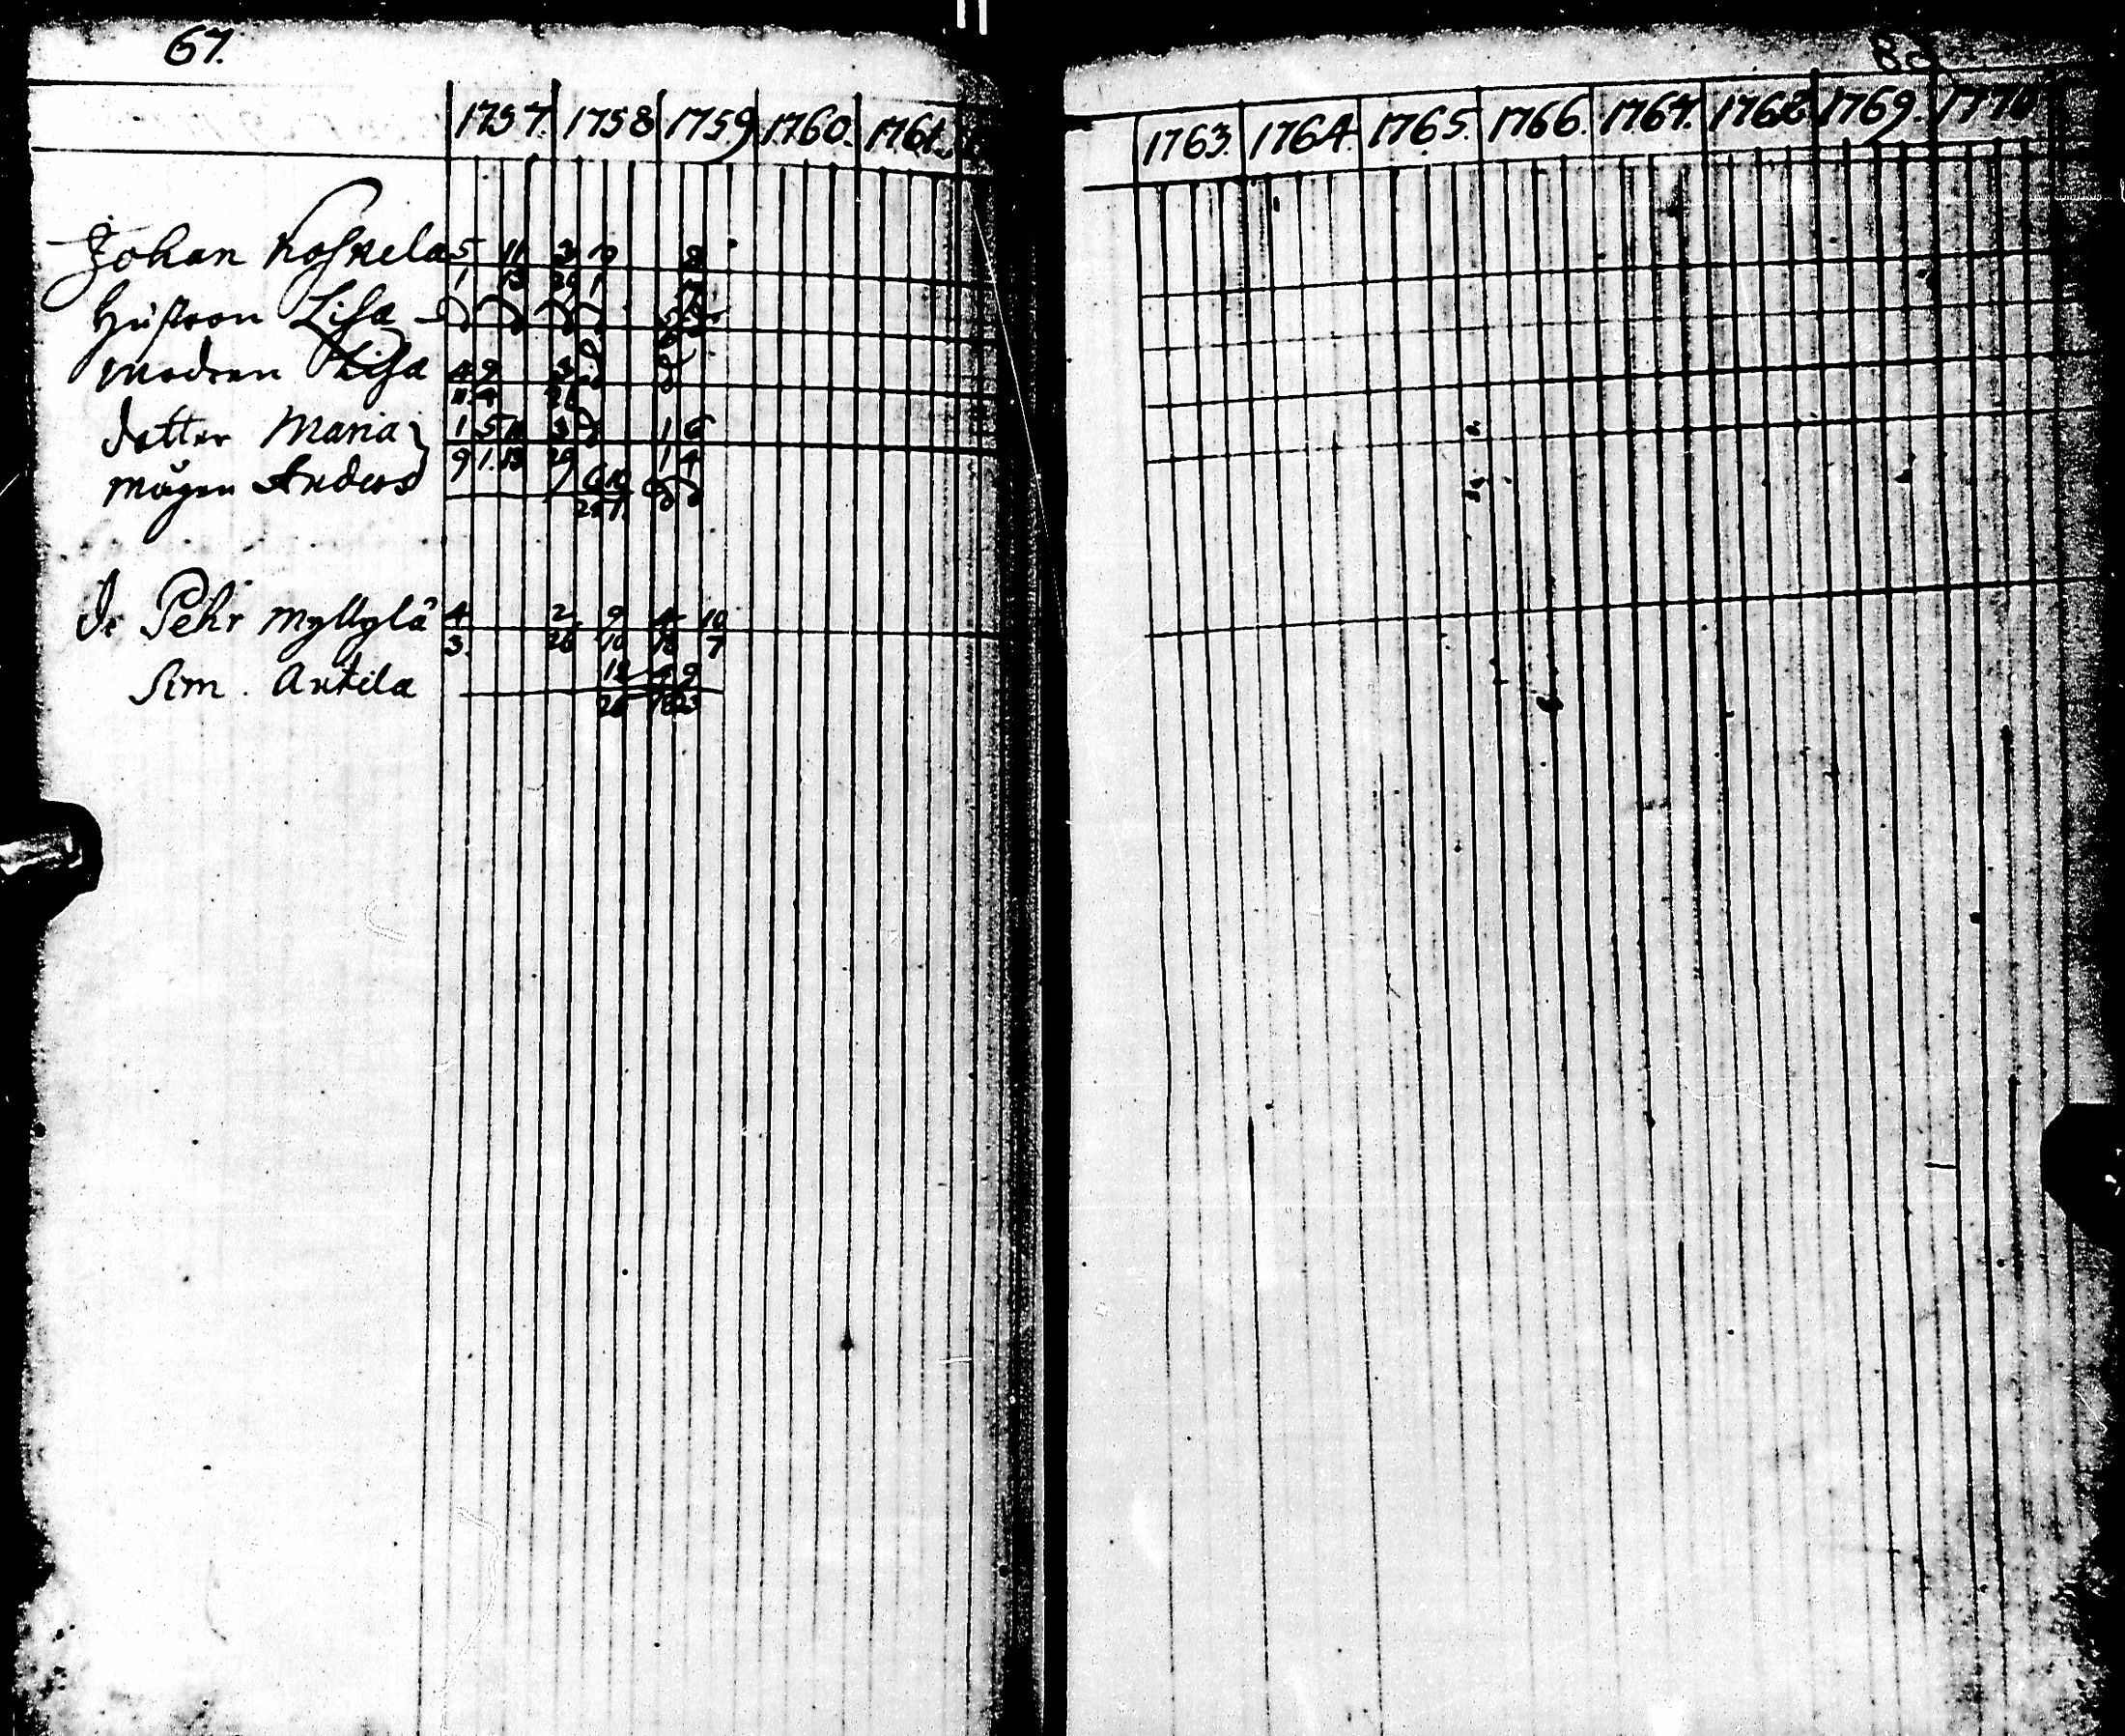 67.
1757. 1758 1759 1760. 1761.
Johan Koskela 5 11 3 9
1 13 20 1
Hustron Lisa
Modren Lisa 4 9 3
11 4
dotter Maria 1 5 11 3 1 6
9 1 13 20 1 4
mågen Anders 6 10
de Pehr Myllylä 4 2 9 4 10
3. 26 10 18 7
Sim. Antila 12 4 9
26 18 23
1763. 1764. 1765. 1766. 1767. 1768 1769. 1770